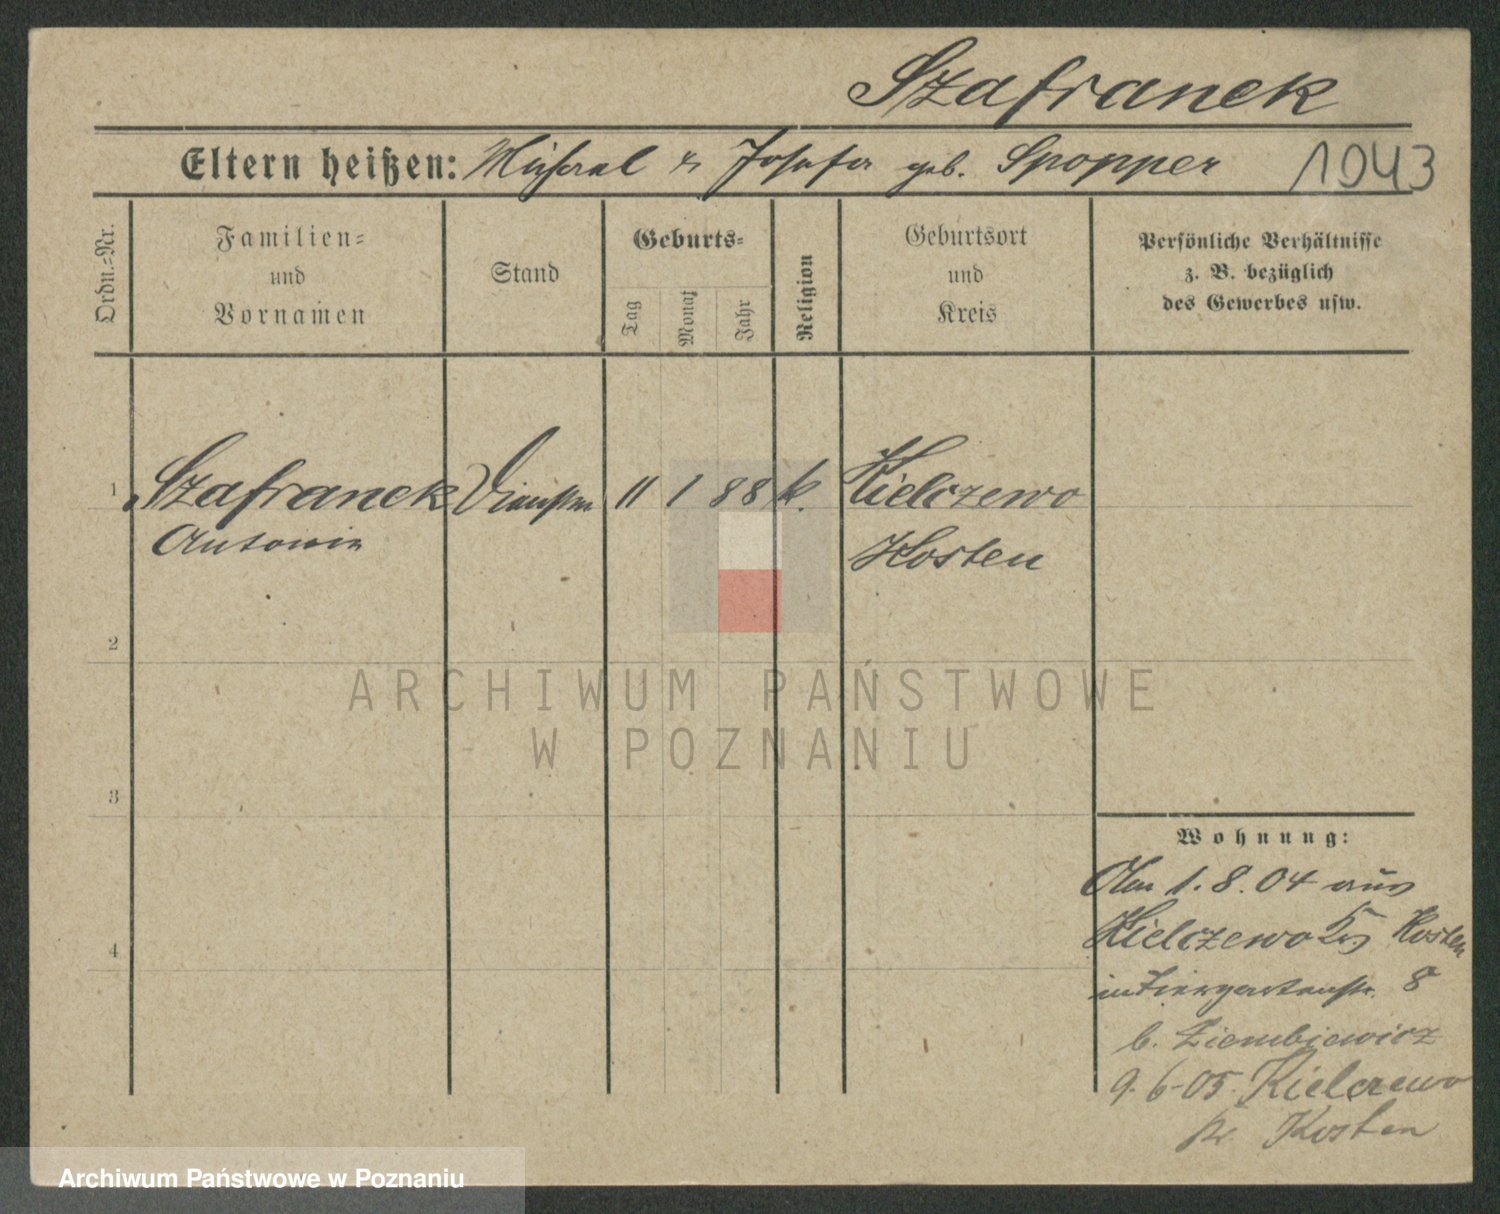 Szafranek
Eltern heißen: Michael u Josefa geb. Spopper 1043
Ordn.-Nr.
Familien-
und
Vornamen
Stand
Geburts-
Tag
Monat
Jahr
Religion
Geburtsort
und
Kreis
Persönliche Verhältnisse
z. B. bezüglich
des Gewerbes usw.
1 Szafranek 11 1 88 k. Kielczewo
Antonin Kosten
2
3
4
Wohnung:
Am 1. 8. 04 aus
Kielczewo Krs Kosten
in Tiergartenstr. 8
b. Ziembiewicz
9.6-05. Kielczewo
Kr. Kosten
ARCHIWUM PAŃSTWOWE
W POZNANIU
Archiwum Państwowe w Poznaniu